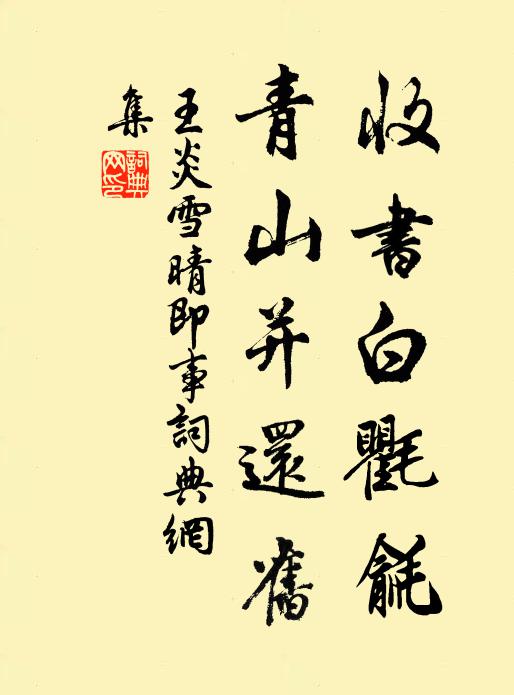 收書白氍毹
青山并還舊
王炎雪晴即事詞典網
集
詞典網印